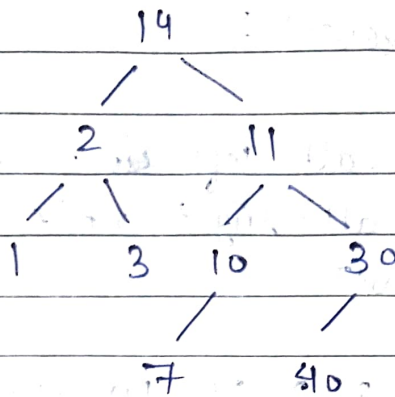 14
2 11
1 3 10 30
7 40